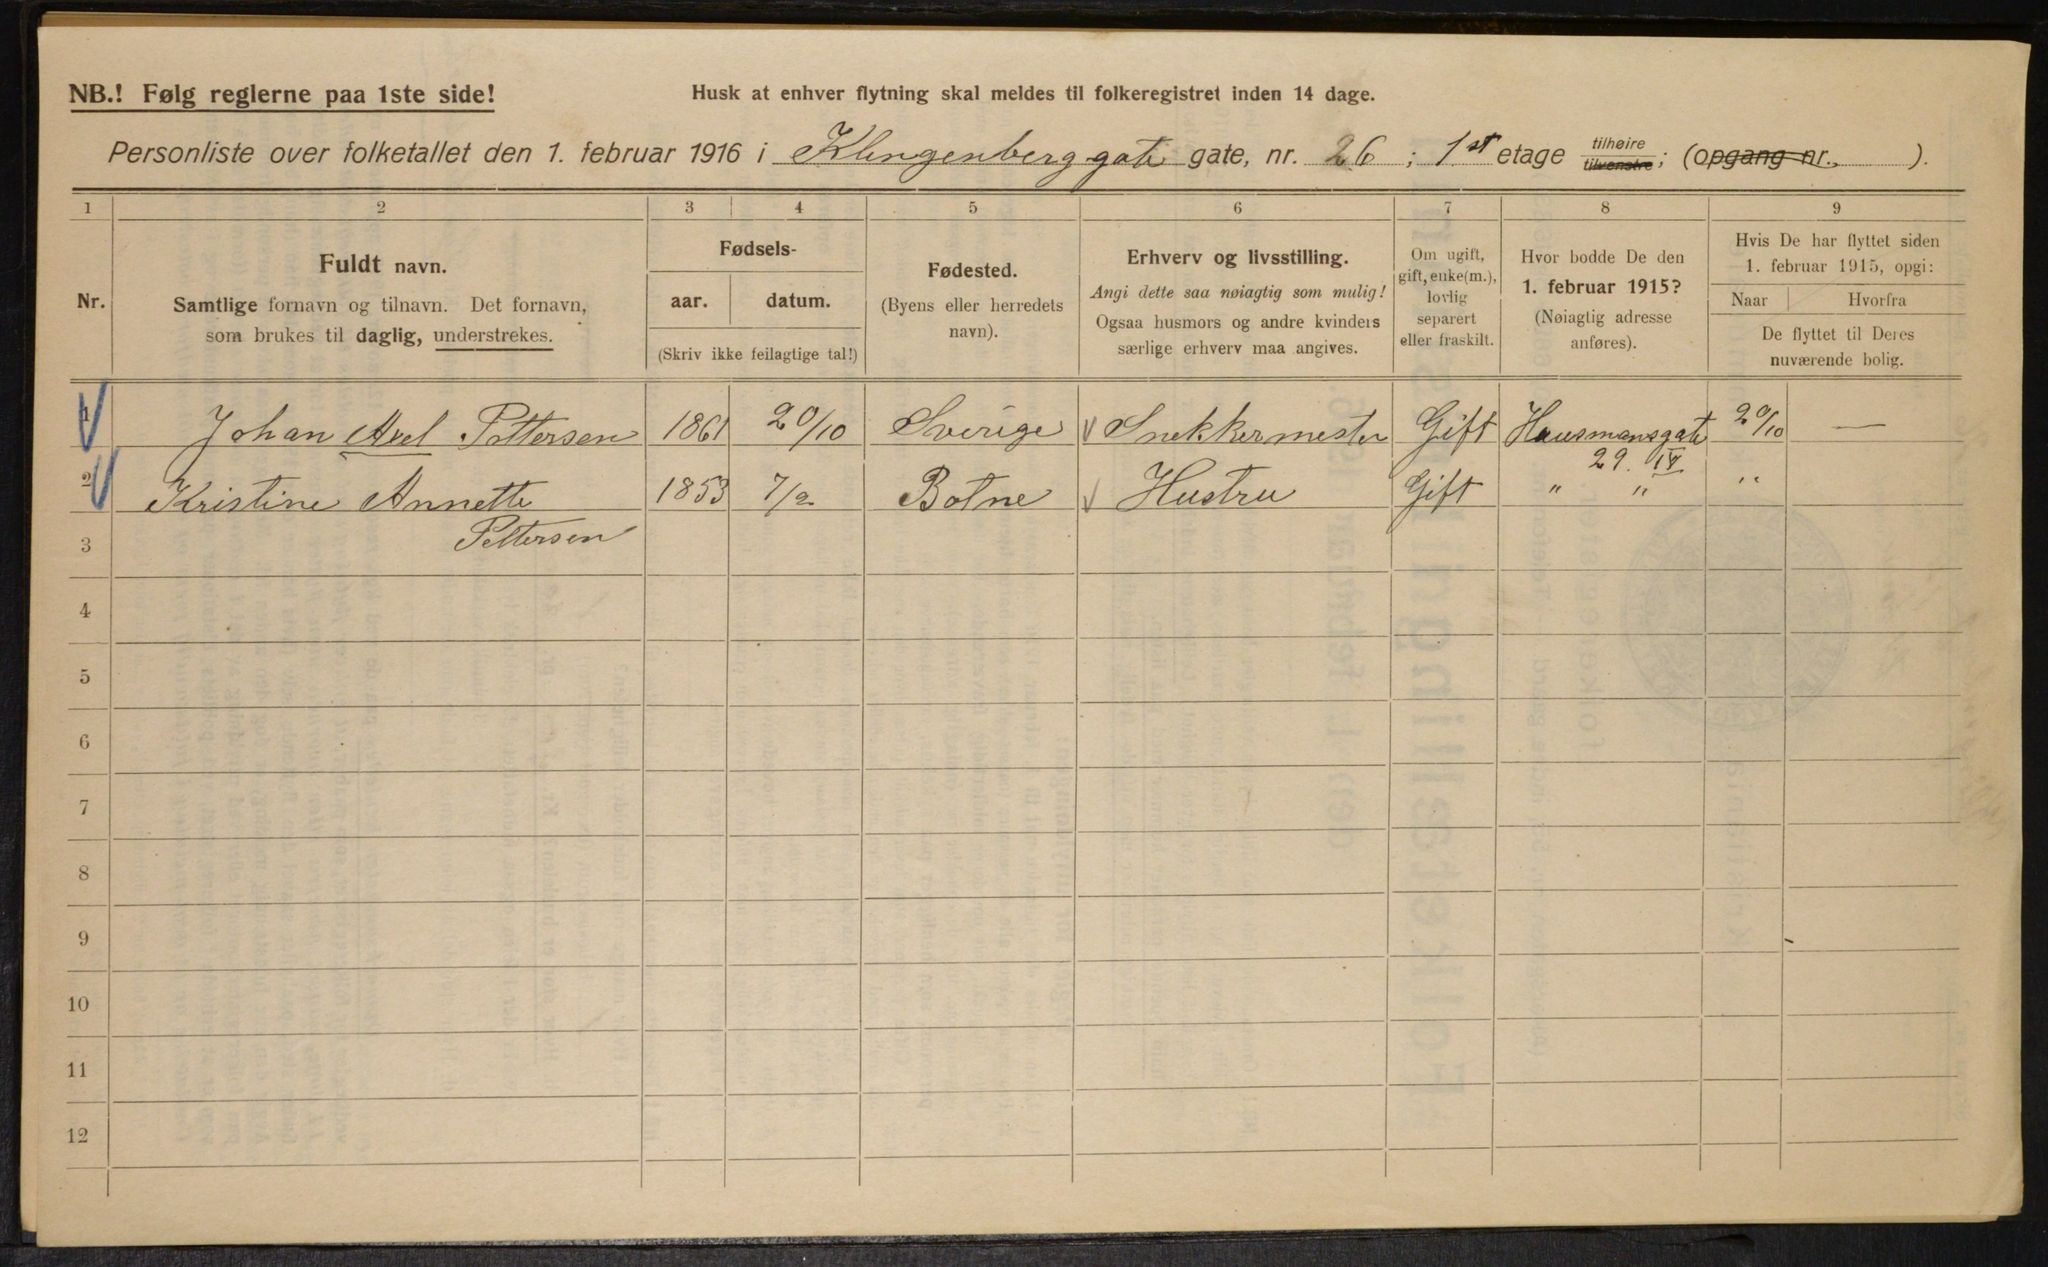 NB.! Følg reglerne paa 1ste side!
Husk at enhver flytning skal meldes til folkeregistret inden 14 dage.
Personliste over folketallet den 1. februar 1916 i Klingenberggate gate, nr. 26 ; 1st etage tilhøire tilvenstre; (opgang nr. ).
1 2 3 4 5 6 7 8 9
Nr.
Fuldt navn.
Samtlige fornavn og tilnavn. Det fornavn,
som brukes til daglig, understrekes.
Fødsels-
aar. datum.
(Skriv ikke feilagtige tal!)
Fødested.
(Byens eller herredets
navn).
Erhverv og livsstilling.
Angi dette saa nøiagtig som mulig!
Ogsaa husmors og andre kvinders
særlige erhverv maa angives.
Om ugift,
gift, enke(m.),
lovlig
separert
eller fraskilt.
Hvor bodde De den
1. februar 1915?
(Nøiagtig adresse
anføres).
Hvis De har flyttet siden
1. februar 1915, opgi:
Naar Hvorfra
De flyttet til Deres
nuværende bolig.
1 Johan Axel Pettersen 1861 20/10 Sverige Snekkermester Gift Hausmansgate 20/10 —
29. IV
2 Kristine Annette 1853 7/2 Botne Hustru Gift " " "
Pettersen
3
4
5
6
7
8
9
10
11
12